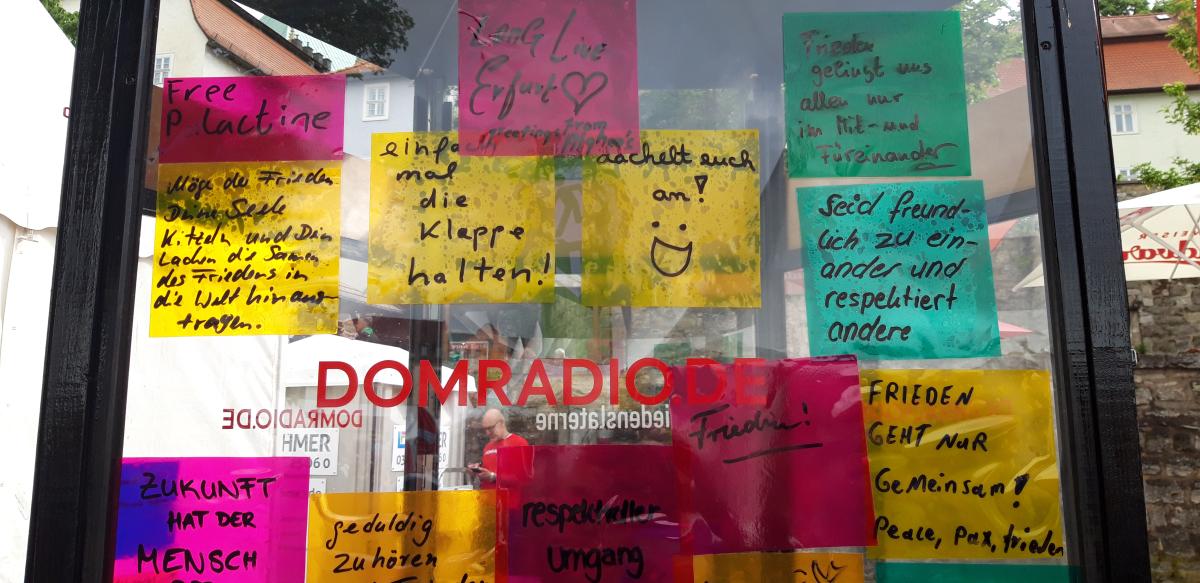 Free
P lactine
LonG Live
Erfurt
greetings from
Frieden
gelingt uns
allen nur
im Mit- und
Füreinander
Möge der Frieden
Deine Seele
Kitzeln und Dein
Lachen die Samen
des Friedens in
die Welt hinaus-
tragen.
einfach
mal
die
Klappe
halten!
Lächelt euch
an!
Seid freund-
lich zu ein-
ander und
respektiert
andere
DOMRADIO.DE
DOMRADIO.DE
iedenslaterne
HMER
Frieden!
FRIEDEN
GEHT NUR
GeMeinsam!
Peace, Pax, frieden
ZUKUNFT
HAT DER
MENSCH
geduldig
zuhören
respektvoller
Umgang